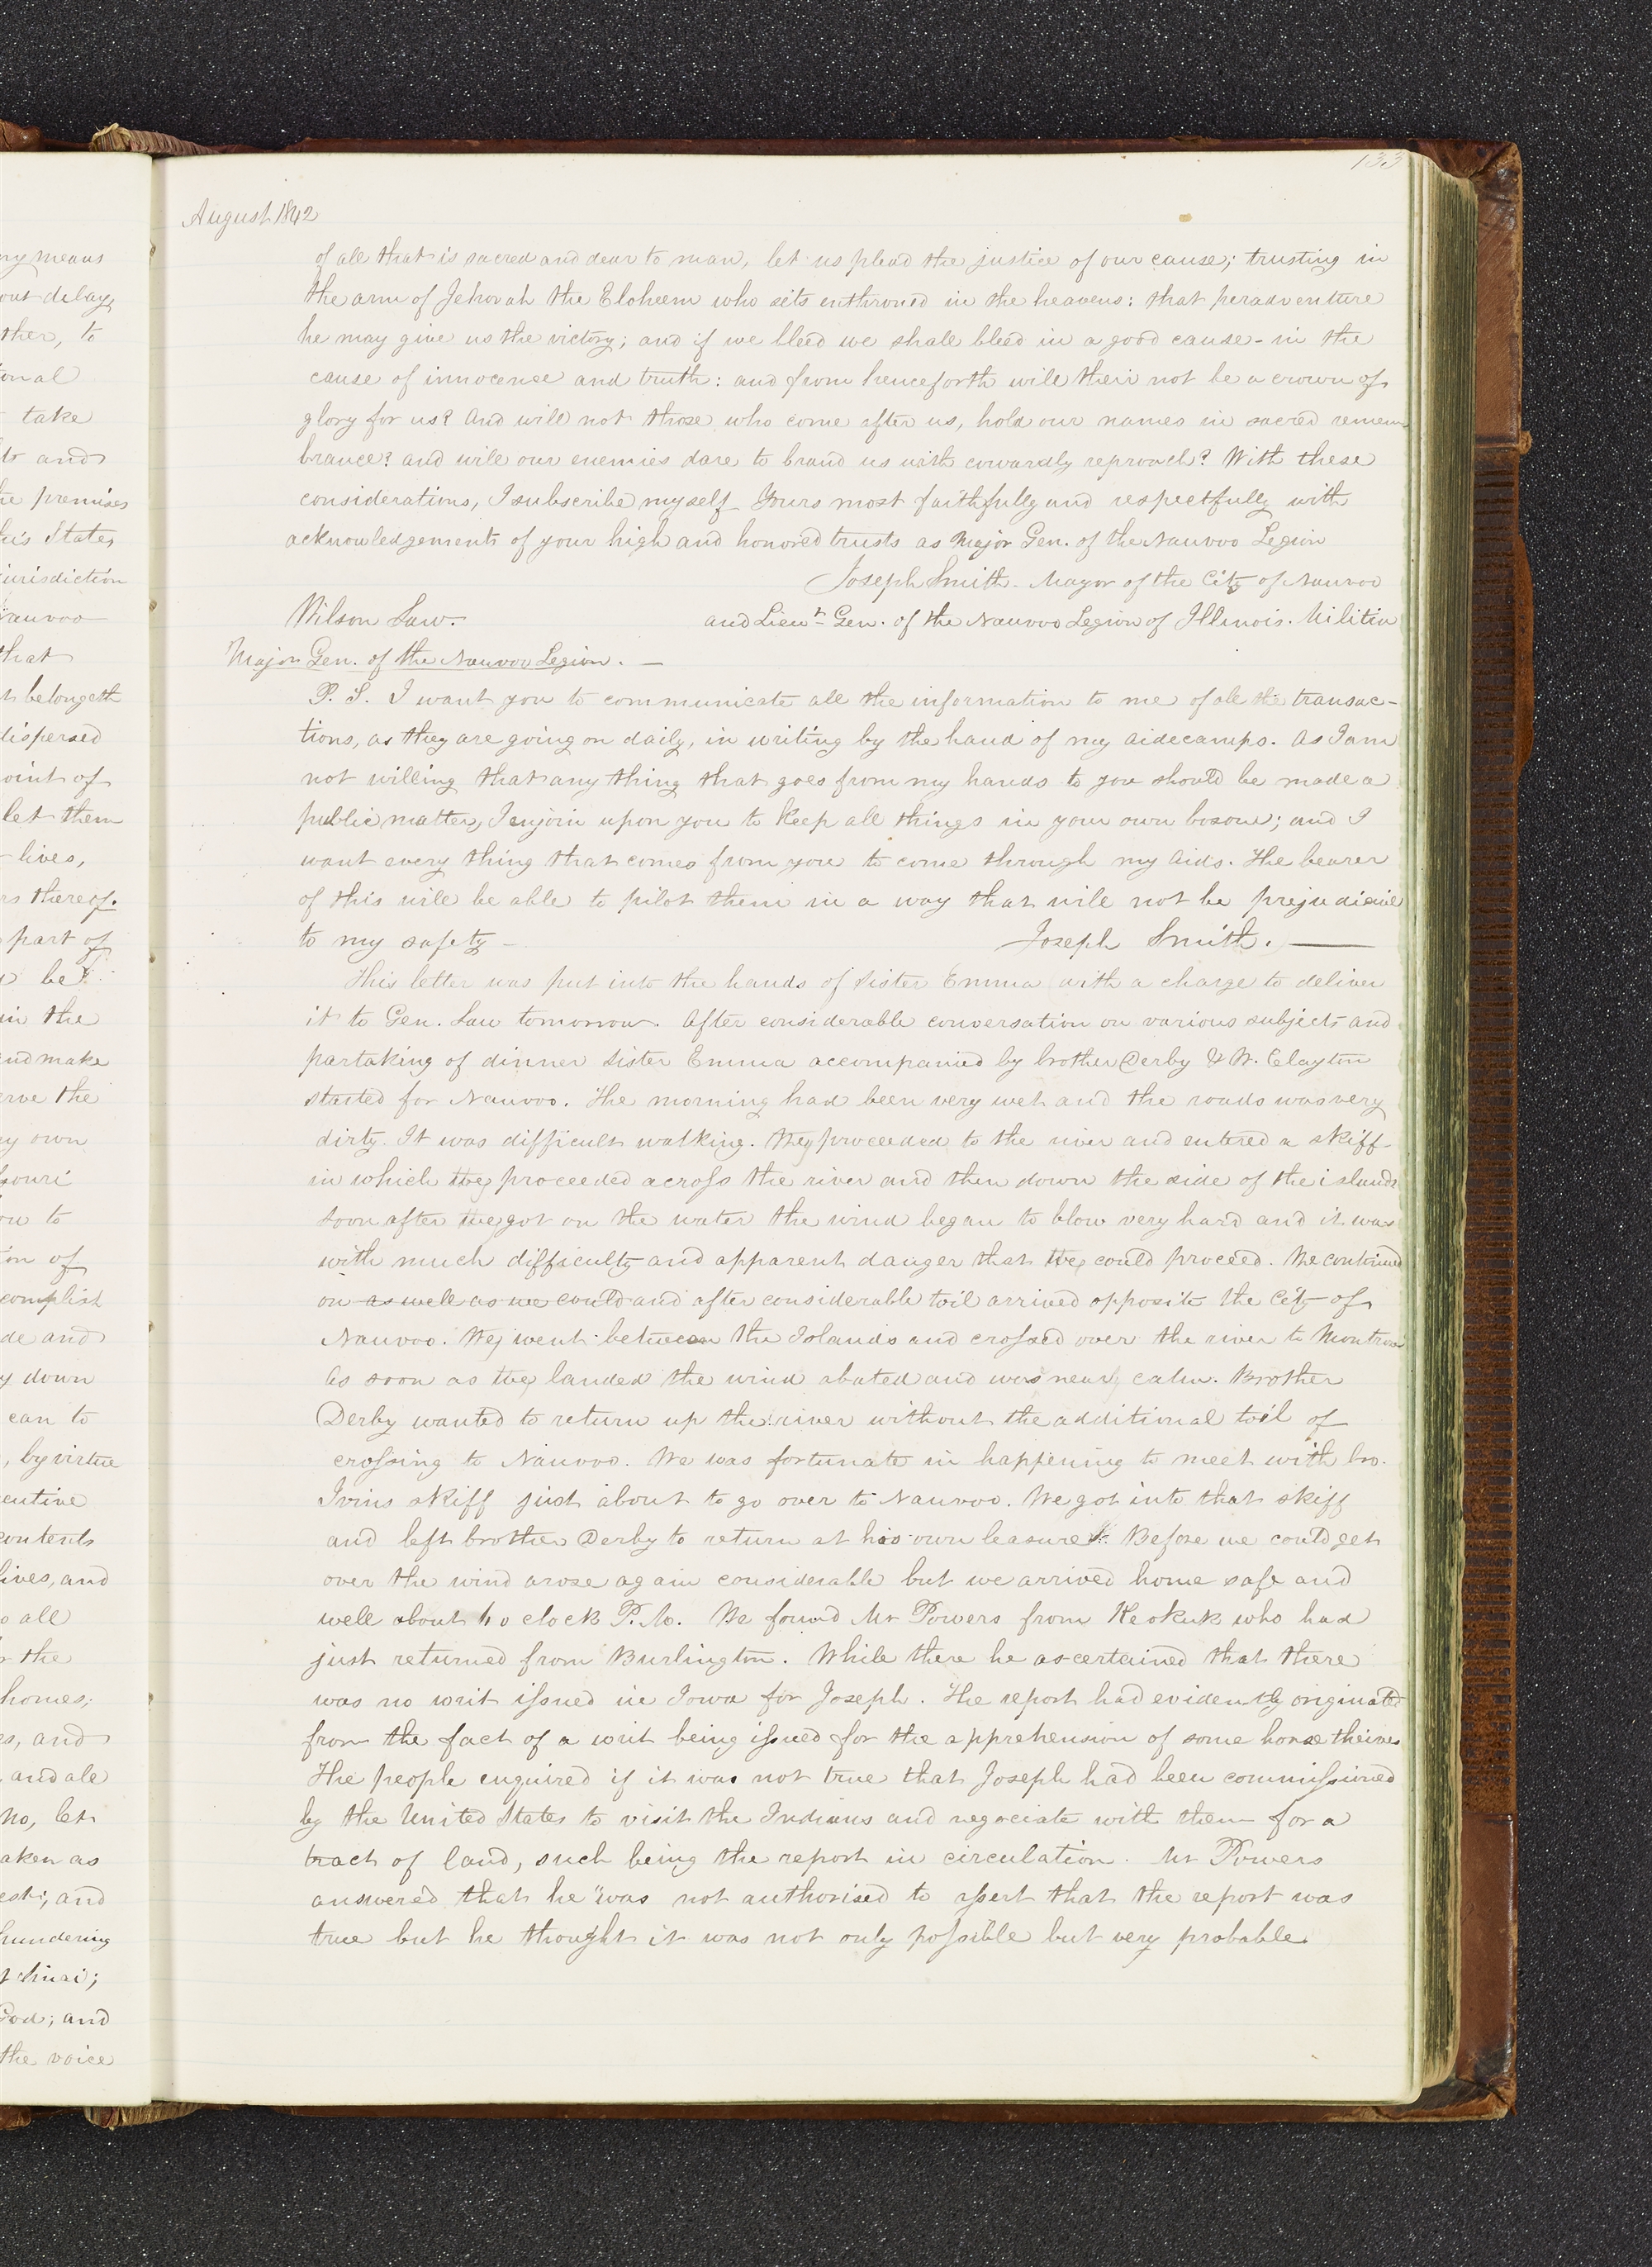 133
August 1842
of all that is sacred and dear to man, let us plead the justice of our cause; trusting in
the arm of Jehovah the Eloheem who sits enthroned in the heavens: that peradventure
he may give us the victory; and if we bleed we shall bleed in a good cause - in the
cause of innocence and truth: and from henceforth will their not be a crown of
glory for us? And will not those who come after us, hold our names in sacred remem
brance? and will our enemies dare to brand us with cowardly reproach? With these
considerations, I subscribe myself Yours most faithfully and respectfully with
acknowledgements of your high and honored trusts as Major Gen. of the Nauvoo Legion
Joseph Smith. Mayor of the City of Nauvoo
Wilson Law. and Lieut Gen. of the Nauvoo Legion of Illinois. Militia
Major Gen. of the Nauvoo Legion. —
P. S. I want you to communicate all the information to me of all the transac-
tions, as they are going on daily, in writing by the hand of my aidecamps. As I am
not willing that any thing that goes from my hands to you should be made a
public matter, I enjoin upon you to keep all things in your own bosom; and I
want every thing that comes from you to come through my aids. The bearer
of this will be able to pilot them in a way that will not be prejudicial
to my safety — Joseph Smith. —
This letter was put into the hands of sister Emma with a charge to deliver
it to Gen. Law tomorrow. After considerable conversation on various subjects and
partaking of dinner sister Emma accompanied by brother Derby & W. Clayton
started for Nauvoo. The morning had been very wet and the roads was very
dirty. It was difficult walking. they proceeded to the river and entered a skiff
in which they proceeded across the river and then down the side of the islands
Soon after they got on the water the wind began to blow very hard and it was
with much difficulty and apparent danger that they could proceed. We continued
on as well as we could and after considerable toil arrived opposite the City of
Nauvoo. They went between the Islands and crossed over the river to Montrose
As soon as they landed the wind abated and was nearly calm. Brother
Derby wanted to return up the river without the additional toil of
crossing to Nauvoo. We was fortunate in happening to meet with bro.
Ivins skiff just about to go over to Nauvoo. We got into that skiff
and left brother Derby to return at his own leasure. Before we could get
over the wind arose again considerable but we arrived home safe and
well about o clock P.M. We found Mr Powers from Keokuk who had
just returned from Burlington. While there he ascertained that there
was no writ issued in Iowa for Joseph. The report had evidently originated
from the fact of a writ being issued for the apprehension of some horse theives
The people enquired if it was not true that Joseph had been commissioned
by the United States to visit the Indians and negociate with them for a
tract of land, such being the report in circulation. Mr Powers
answered that he "was not authorised to assert that the report was
true but he thought it was not only possible but very probable.